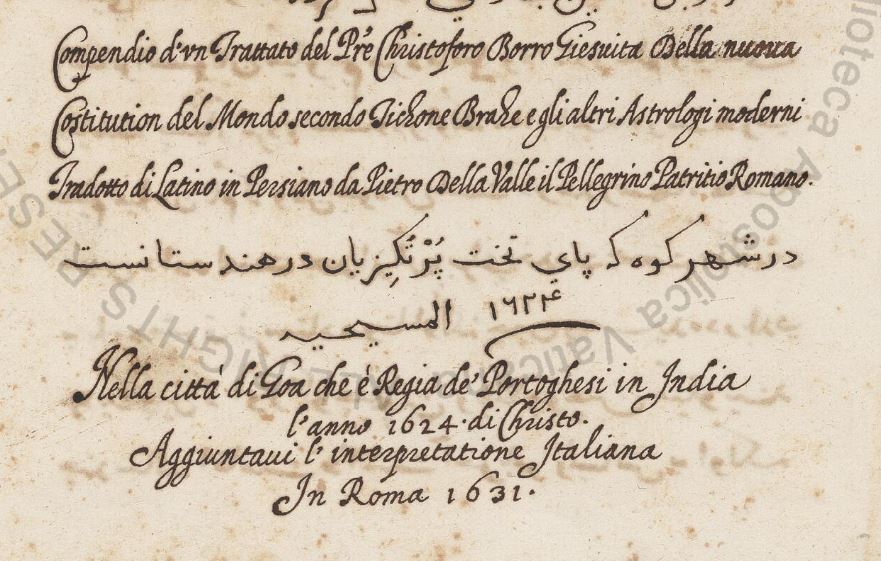 Compendio d'vn Trattato del Pre' Christoforo Borro Giesuita Della nuova
Costitution del Mondo secondo Tichone Brahe e gli altri Astrologi moderni
Tradotto di Latino in Persiano da Pietro Della Valle il Pellegrino Patritio Romano.
در شهر كوه كه پاي تخت پُرْتُكِيزيان در هندستانست
۱۶۲۴ المسيحيه
Nella città di Goa che è Regia de' Portoghesi in India
l'anno 1624. di Christo.
Aggiuntaui l'interpretatione Italiana
In Roma 1631.